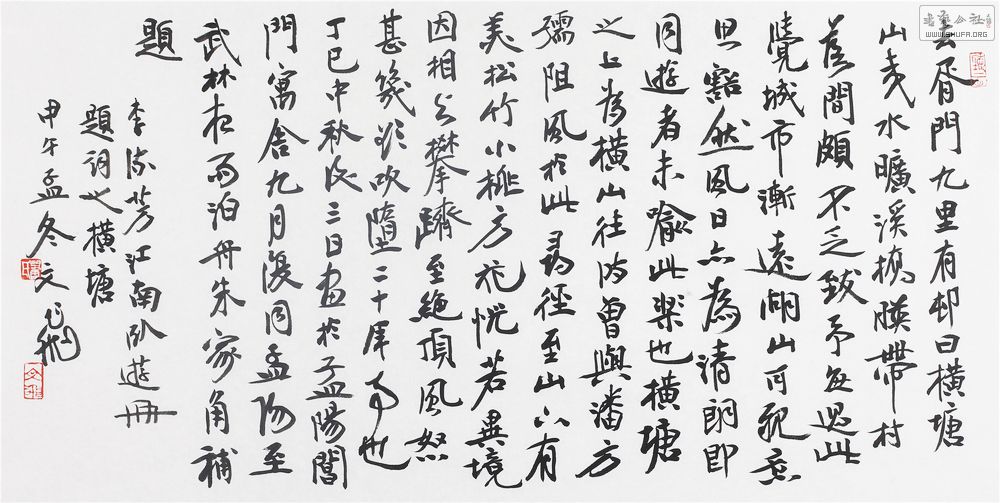 去胥門九里有邨曰橫塘
山夷水曠溪橋暎帶村
落間頗不乏致予每過此
覺城市漸遠湖山可親意
思豁然風日亦為清朗即
同遊者未喻此樂也橫塘
之上為橫山往時曾與潘方
孺阻風於此尋徑至山下有
美松竹小桃方花恍若異境
因相与攀躋至絕頂風怒
甚幾欲吹墮二十年事也
丁巳中秋後三日畫於孟陽閶
門寓舍九月復同孟陽至
武林夜雨泊舟朱家角補
題
李流芳江南臥遊冊
題詞之橫塘
甲午孟冬文
書法公社
WWW.SHUFA.ORG